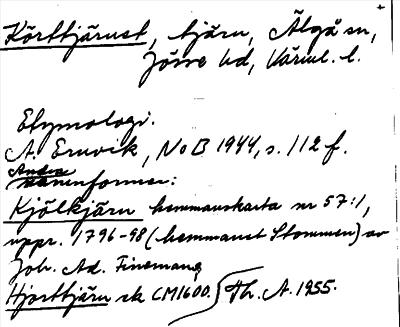 Körttjärnet, tjärn, Älgå sn,
Jösse hd, Värml. l.
Etymologi.
A. Ernvik, NoB 1944, s. 112 f.
Andra
namnformer:
Kjölkjärn hemmanskarta nr 57:1,
uppr. 1796-98 (hemmanet Stommen) av
Joh. Ad. Fineman;
Hjorttjärn ek CM1600. Th. A. 1955.